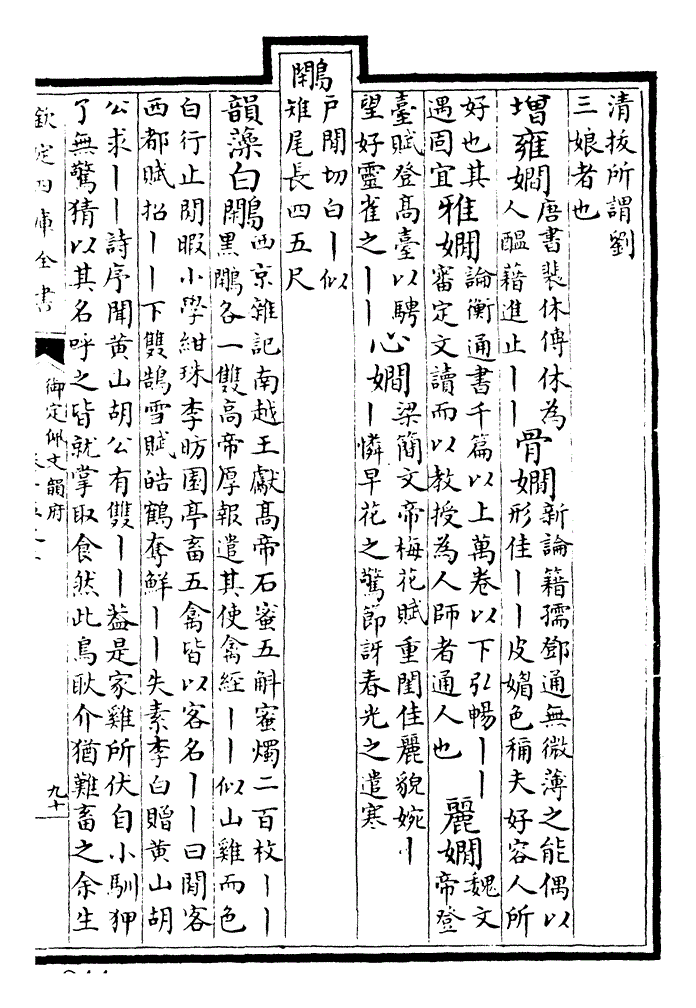 清拔所謂劉
三娘者也
增雍嫺
唐書裴休傳休為
人醖藉進止丨丨
骨嫺
新論籍孺鄧通無微薄之能偶以
形佳丨丨皮媚色稱夫好容人所
好也其
遇固宜
雅嫺
論衡通書千篇以上萬卷以下弘暢丨丨
審定文讀而以教授為人師者通人也
麗嫺
魏文
帝登
臺賦登髙臺以騁
望好靈雀之丨丨
心嫺
梁簡文帝梅花賦重閨佳麗貌婉丨
丨憐早花之驚節訝春光之遣寒
鷴
戶閒切白丨似
雉尾長四五尺
韻藻白鷴
西京雜記南越王獻髙帝石蜜五斛蜜燭二百枚丨丨
黒鷴各一雙髙帝厚報遣其使禽經丨丨似山雞而色
白行止閒暇小學紺珠李昉園亭畜五禽皆以客名丨丨曰閒客
西都賦招丨丨下雙鵠雪賦皓鶴奪鮮丨丨失素李白贈黄山胡
公求丨丨詩序聞黄山胡公有雙丨丨葢是家雞所伏自小馴狎
了無驚猜以其名呼之皆就掌取食然此鳥耿介猶難畜之余生
欽定四庫全書
御定佩文韻府
九十一